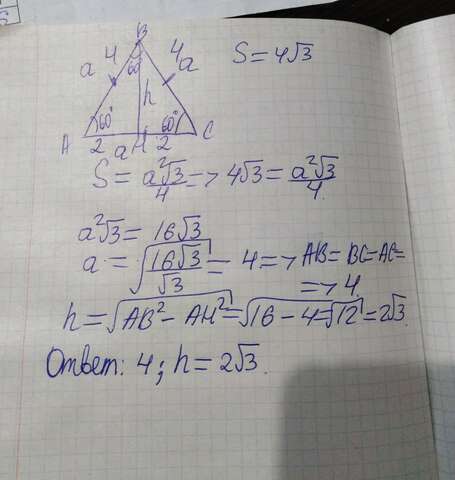 B
4 4
a 60° a S = 4√3
h
60° 60°
A 2 a H 2 C
S = a²√3/4 => 4√3 = a²√3/4
a²√3 = 16√3
a = √(16√3/√3) = 4 => AB = BC = AC =
=> 4
h = √(AB² - AH²) = √(16 - 4) = √12 = 2√3
Ответ: 4; h = 2√3.